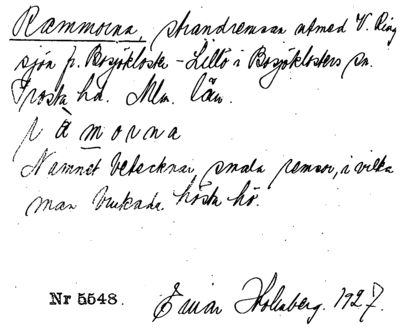 Rammorna, strandremsan utmed V. Ring
sjön fr. Bosjökloster - Lillö i Bosjöklosters sn.
Frosta hd. Mlm. län.
r à m o r n a
Namnet betecknar smala remsor, i vilka
man brukade hösta hö.
Nr 5548. Einar Holmberg. 1927.